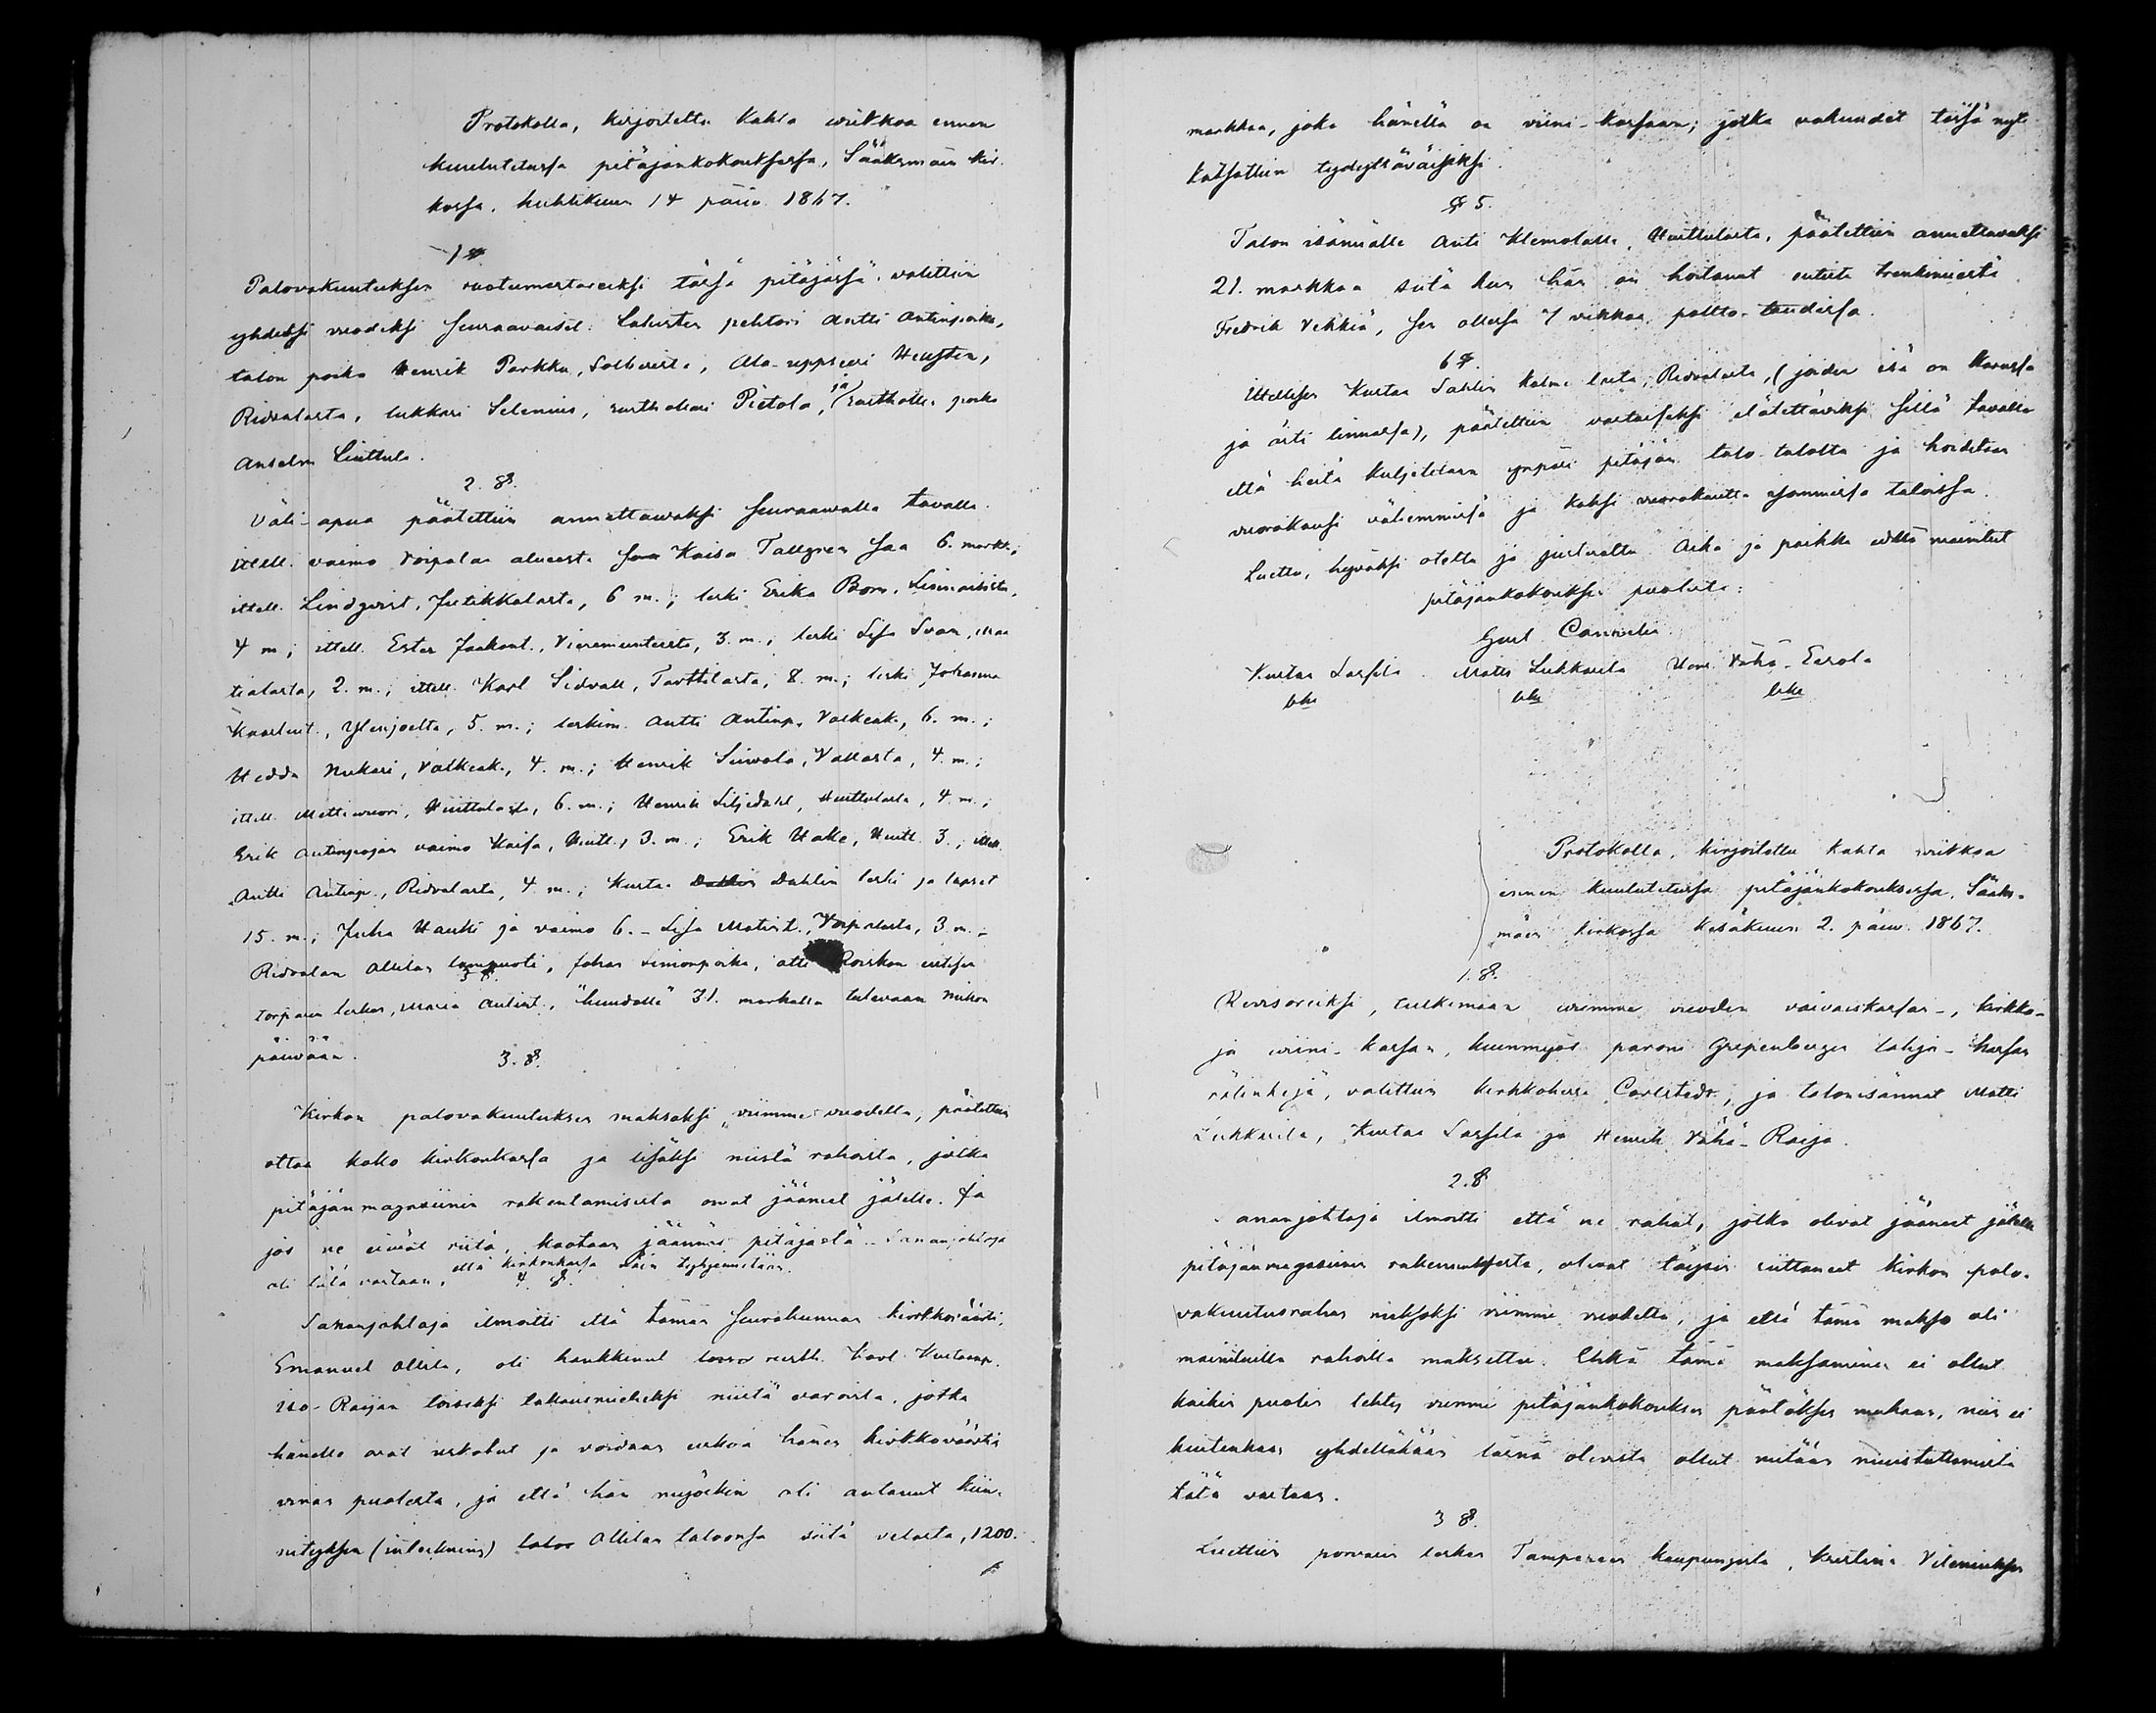 Protokolla, kirjoitettu kahta wiikkoa ennen
kuulutetussa pitäjänkokouksessa, Sääksmäen kir-
kossa, huhtikuun 14 päiv. 1867.
1 §
Palovakuutuksen ruotumestareiksi tässä pitäjässä, valittiin
yhdeksi vuodeksi seuraavaiset: pehtori Antti Antinpoika,
talon poika Henrik Parkku, , Ala-uppseeri Heusten,
Ridvalasta, lukkari Selenius, rustholari Pietola, ja rusthollin poika
Anselm Liuttula.
2. §.
Väli-apua päätettiin annettawaksi seuraawalla tavalla.
ittell. vaimo Voipalan alueesta Kaisa Tallgren saa 6. markk.;
ittell. Lindqvist, Jutikkalasta, 6 m.; leski Erika Bom,
4 m; ittell. Ester Jaakont., 3. m.; leski Lisa Svan, Maa
tialasta, 2. m.; ittell. Karl Sidvall, Tarttilasta, 8. m.; leski Johanna
Kaarlent., Ylenjoelta, 5. m.; leskim. Antti Antinp. Valkeak., 6. m.;
Hedda Nukari, Valkeak., 4. m.; Henrik Siuvola, Vallasta, 4. m.;
ittell. Mattiwuori, Huittulasta, 6. m.; Henrik Liljedahl, Huittulasta, 4 m.;
Erik Antinpojan vaimo Kaisa, Huitt., 3. m.; Erik Hake, Huitt. 3.; ittell.
Antti Antinp., Ridvalasta, 4 m.; Kustaa Dahlin Dahlin leski ja lapset
15. m.; Juha Hauki ja vaimo 6. - Lisa Matint., Voipalasta, 3 m. -
Ridvalan Allilan lampuoti, Johan Simonpoika, otti Roiskon entisen
torparin lesken, Maria Antint., "huudolla" 31. markalla tulevaan Mikon
päivään. 3. §.
Kirkon palovakuutuksen maksoksi viimme vuodelta, päätettiin
ottaa koko kirkonkassa ja lisäksi niistä rahoista, jotka
pitäjänmagasiinin rakentamisesta ovat jääneet jälelle. Ja
jos ne eivät riitä, kootaan jäännös pitäjästä. Sananjohtaja
oli tätä vastaan, että kirkonkassa näin tyhjennetään.
4 §.
Sananjohtaja ilmoitti että tämän seurakunnan kirkkoväärti,
Emanuel Allila, oli hankkinut rusth. Karl Kustaanp.
Iso-Raijan toiseksi takausmieheksi niistä varoista, jotka
hänelle ovat uskotut ja voidaan uskoa hänen kirkkoväärtin
viran puolesta, ja että hän myöskin oli antanut kiin-
nityksen (inteckning) Allilan taloonsa siitä velasta, 1200.
markkaa, joka hänellä on viini-kassaan; jotka vakuudet tässä nyt
katsottiin tyydyttäväisiksi.
§ 5.
Talon isännälle Anti Klemolalle, Huittulasta, päätettiin annettavaksi
21. markkaa siitä kun hän on hoitanut entistä trenkimiestä
Fredrik Vekkiä, sen ollessa 7 viikkoa poltto-taudissa.
6 §.
Itellisen Kustaa Sahlin kolme lasta, Ridvalasta, (joiden isä on
ja äiti linnassa), päätettiin vastaiseksi elätettäväksi sillä tavalla
että heitä kuljetetaan ympäri pitäjän talo talolta ja hoidetaan
vuorokausi vähemmissä ja kaksi vuorokautta isommissa taloissa.
Luettu, hyväksi otettu ja justerattu. Aika ja paikka edellä mainitut
pitäjänkokouksen puolesta:
Kustaa Sassila Matti Liukkaila Vähä-Eerola
Protokolla, kirjoitettu kahta wiikkoa
ennen kuulutetussa pitäjänkokouksessa, Sääks-
mäen kirkossa Kesäkuun 2. päiw. 1867.
1. §.
Revisoreiksi, tutkimaan viimme vuoden vaivaiskassan-, kirkko-
ja viini-kassan, kuinmyös paroni Gripenbergin lahja-kassan
rätinkejä, valittiin kirkkoherra Carlstedt, ja talonisännät Matti
Liukkaila, Kustaa Sassila ja Henrik Vähä-Raija.
2. §
ananjohtaja ilmoitti että ne rahat, jotka olivat jääneet jälelle
pitäjänmagasiinin rakennuksesta, olivat täysin riittäneet kirkon palo-
vakuutusrahan maksoksi viimme vuodelta, ja että tämä makso oli
mainituilla rahoilla maksettu. Ehkä tämä maksaminen ei ollut
kaikin puolin tehty viimme pitäjänkokouksen päätöksen mukaan, niin ei
kuitenkaan yhdelläkään läsnä olevista ollut mitään muistuttamista
tätä vastaan.
3 §.
Luettiin porvarin lesken Tampereen kaupungista, Kristina